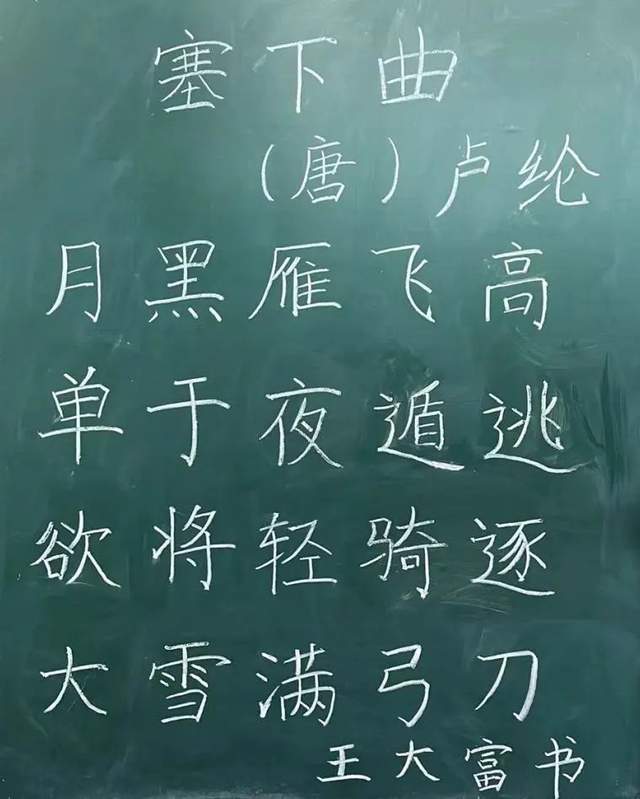 塞下曲
（唐）卢纶
月黑雁飞高
单于夜遁逃
欲将轻骑逐
大雪满弓刀
王大富书